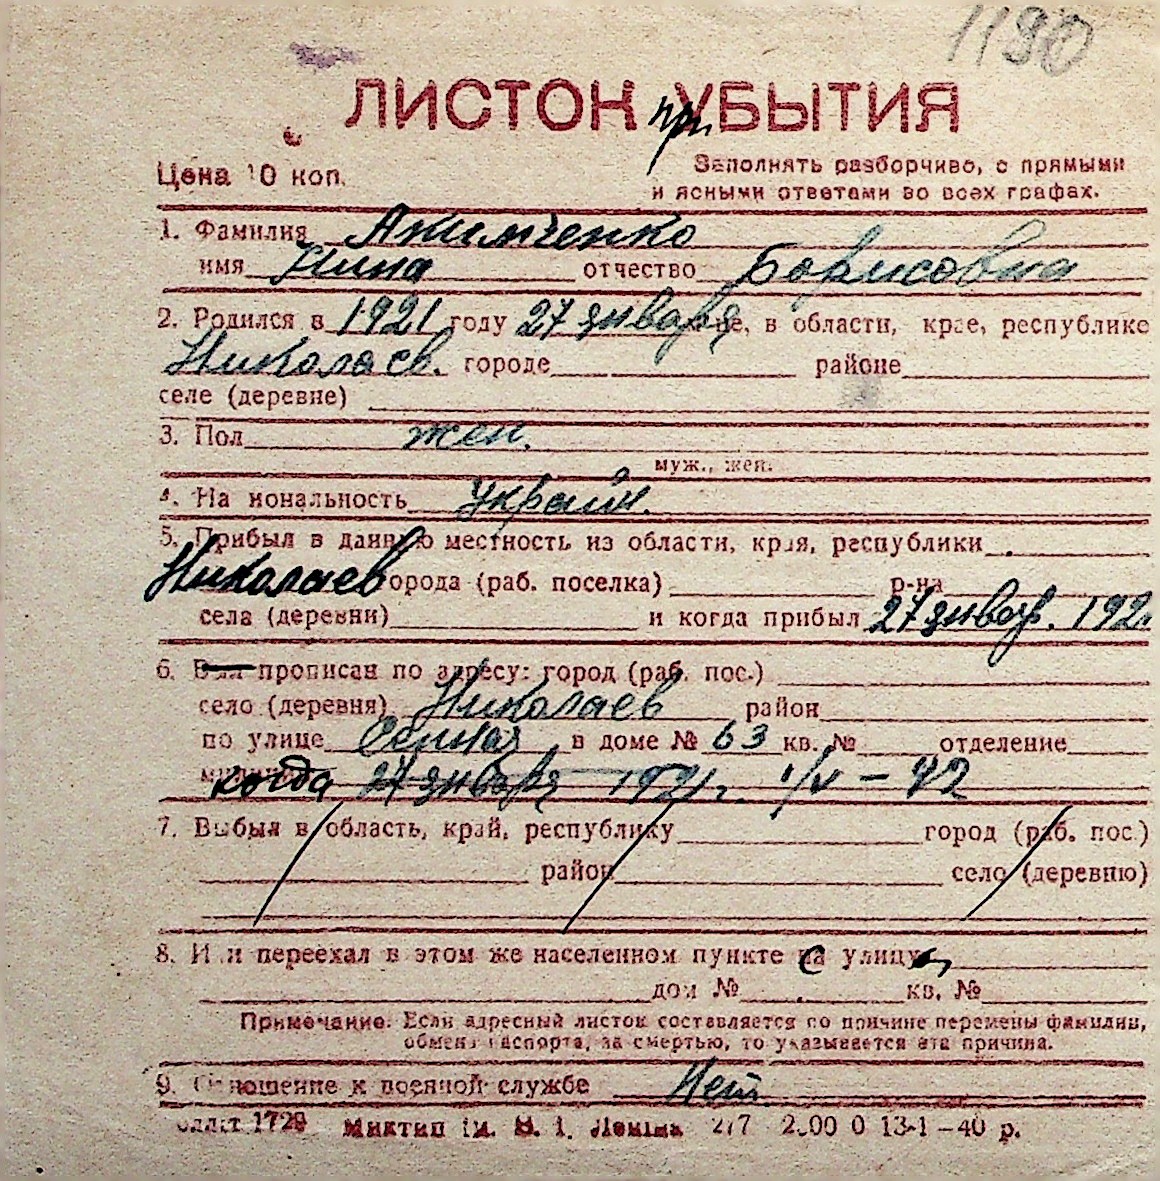 1190
ЛИСТОК при УБЫТИЯ
Цена 10 коп.
Заполнять разборчиво, с прямыми
и ясными ответами во всех графах.
1. Фамилия Акимченко
имя Нина отчество Борисовна
2. Родился в 1921 году 27 января не, в области, крае, республике
Николаев. городе районе
селе (деревне)
3. Пол жен.
муж., жен.
4. На иональность украин.
5. Прибыл в данную местность из области, края, республики
Николаев орода (раб. поселка) р-на
села (деревни) и когда прибыл 27 январ. 192
6. Был прописан по адресу: город (раб. пос.)
село (деревня) Николаев район
по улице Сенная в доме № 63 кв. № отделение
когда 27 января 1921 г. 1/V - 42
7. Выбыл в область, край, республику город (раб. пос.)
район село (деревню)
8. И и переехал в этом же населенном пункте с на улицу
дом № кв. №
Примечание: Если адресный листок составляется по причине перемены фамилии,
обмена паспорта, за смертью, то указывается эта причина.
9. Отношение к военной службе Нет
1729 Миктип Ім. В. І. Леніна 277 2.00 0 13-1-40 р.